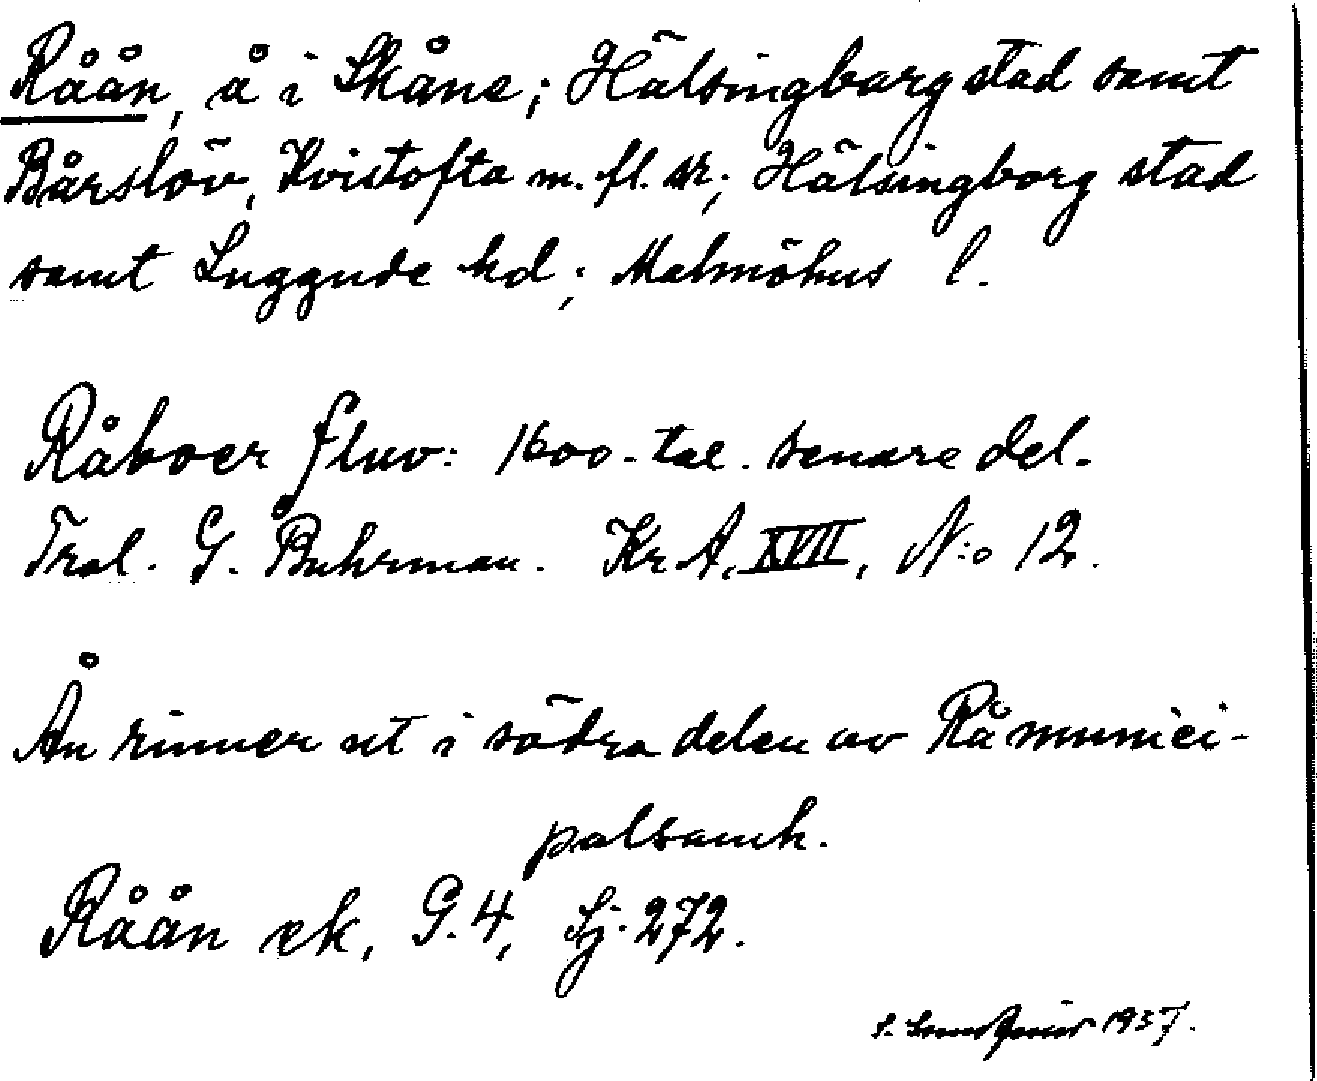 Råån, å i Skåne; Hälsingborg stad samt
Bårslöv, Kvistofta m. fl. sr; Hälsingborg stad
samt Luggude hd; Malmöhus l.
Råboer fluv: 1600-tal. senare del.
Tral. G. Buhrman. Kr. A, XVII, N:o 12.
Ån rinner ut i södra delen av Råå munici-
palsamh.
Råån ek, G. 4, Sj. 272.
1937.